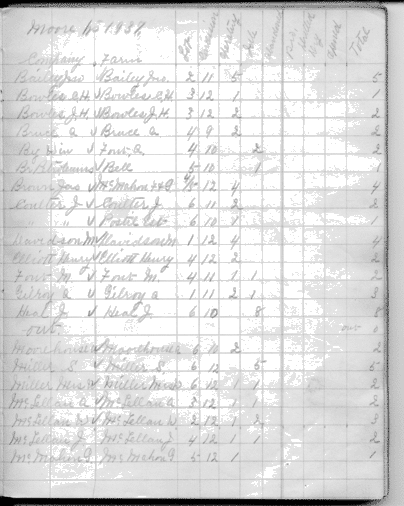 Moore 1937
Company Farm Lot Concession Total
Bailey Jno Bailey Jno. 2 11 5 5
Bowles C.H. Bowles C.H. 3 12 1 1
Bowles J.H. Bowles J.H. 3 12 2 2
Bruce A Bruce A 4 9 2 2
Font. A. 4 10 2 2
Bell 5 10 1 1
Brown Jas McMahon 12 4 4
Coulter J Coulter J 6 11 2 2
" " 6 10 1 1
Davidson M Davidson M 1 12 4 4
Elliott Henry Elliott Henry 4 12 2 2
Font M. Font M. 4 11 1 1 2
Gilroy A Gilroy A 1 11 2 1 3
Heal J. Heal J 6 10 8 8
out out
Moorehouse Moorehouse 6 10 2 2
Miller S. Miller S. 6 12 5 5
Miller Mrs Miller Mrs 6 12 1 1 2
McLellan A McLellan A 3 12 1 1 2
McLellan W McLellan W 2 12 1 2 3
McLellan J McLellan J 4 12 1 1 2
McMahon McMahon 5 12 1 1